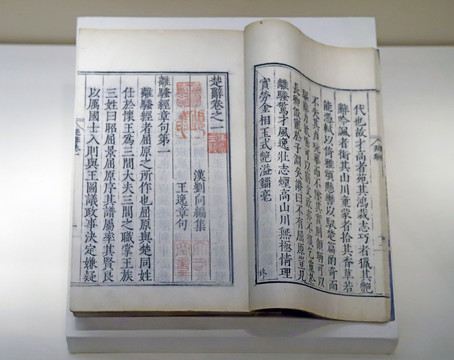 代也故才高者菀其鴻裁志巧者獵其艷
辭吟諷者銜其山川童蒙者拾其香草若
能憑軾以倚雅頌懸轡以馭楚篇酌奇而
不失其貞翫華而不墜其實則顧盼可以
驅辭力欬唾可以窮文致亦不復乞靈於
長卿假寵於子淵矣讚曰不有屈原豈見
離騷驚才風逸壯志煙高山川無極情理
實勞金相玉式艷溢錙毫
楚辭卷之一
漢劉向編集
王逸章句
離騷經章句第一
離騷經者屈原之所作也屈原與楚同姓
仕於懷王為三閭大夫三閭之職掌王族
三姓曰昭屈景屈原序其譜屬率其賢良
以厲國士入則與王圖議政事決定嫌疑